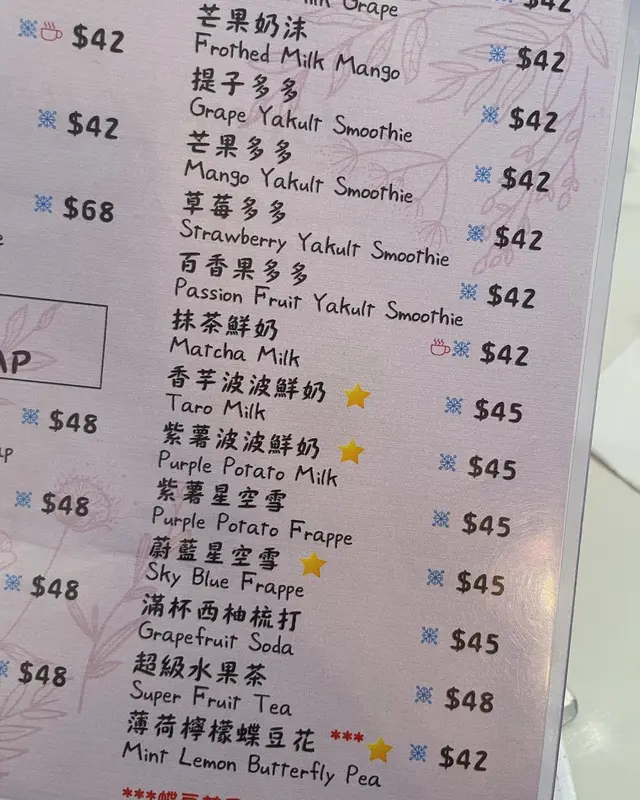 Grape
$42
芒果奶沫
Frothed Milk Mango
$42
提子多多
Grape Yakult Smoothie
$42
芒果多多
Mango Yakult Smoothie
$42
草莓多多
Strawberry Yakult Smoothie
$42
百香果多多
Passion Fruit Yakult Smoothie
$42
抹茶鮮奶
Matcha Milk
$42
香芋波波鮮奶
Taro Milk
$45
紫薯波波鮮奶
Purple Potato Milk
$45
紫薯星空雪
Purple Potato Frappe
$45
蔚藍星空雪
Sky Blue Frappe
$45
滿杯西柚梳打
Grapefruit Soda
$45
超級水果茶
Super Fruit Tea
$48
薄荷檸檬蝶豆花 ***
Mint Lemon Butterfly Pea
$42
$42
$42
$68
AP
$48
$48
$48
$48